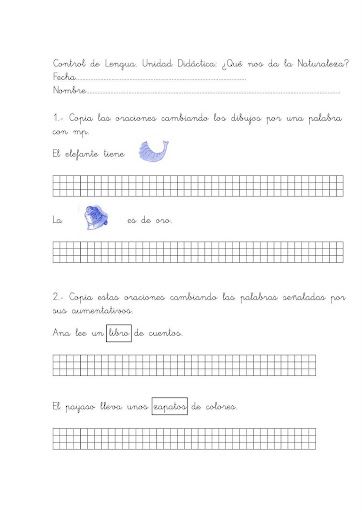 Control de Lengua. Unidad Didáctica: ¿Qué nos da la Naturaleza?
Fecha
Nombre
1.- Copia las oraciones cambiando los dibujos por una palabra
con mp.
El elefante tiene
La es de oro.
2.- Copia estas oraciones cambiando las palabras señaladas por
sus aumentativos.
Ana lee un libro de cuentos.
El payaso lleva unos zapatos de colores.